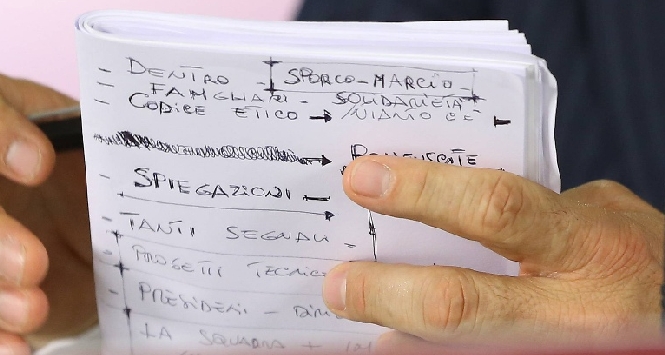 - DENTRO - SPORCO-MARCIO -
- FAMIGLIARI - SOLIDARIETÀ
- CODICE ETICO →
- SPIEGAZIONI -
- TANTI SEGNALI -
- PROGETTI TECNICO
- PRESIDENTI -
- LA SQUADRA +